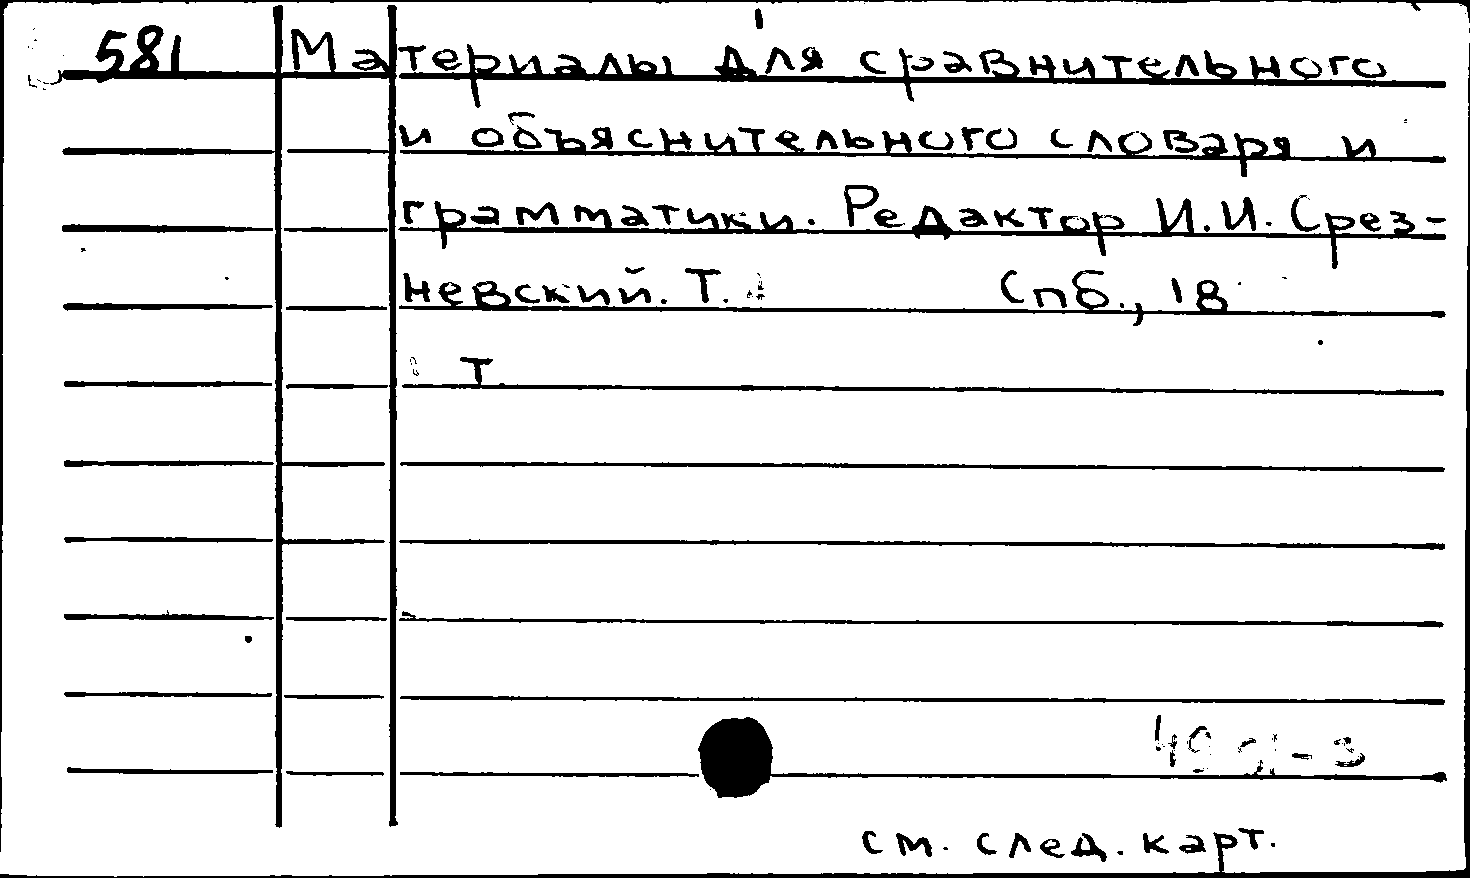 581 Материалы для сравнительного
и объяснительного словаря и
грамматики. Редактор И.И. Срез-
невский. Т. Спб., 18
Т.
см. след. карт.